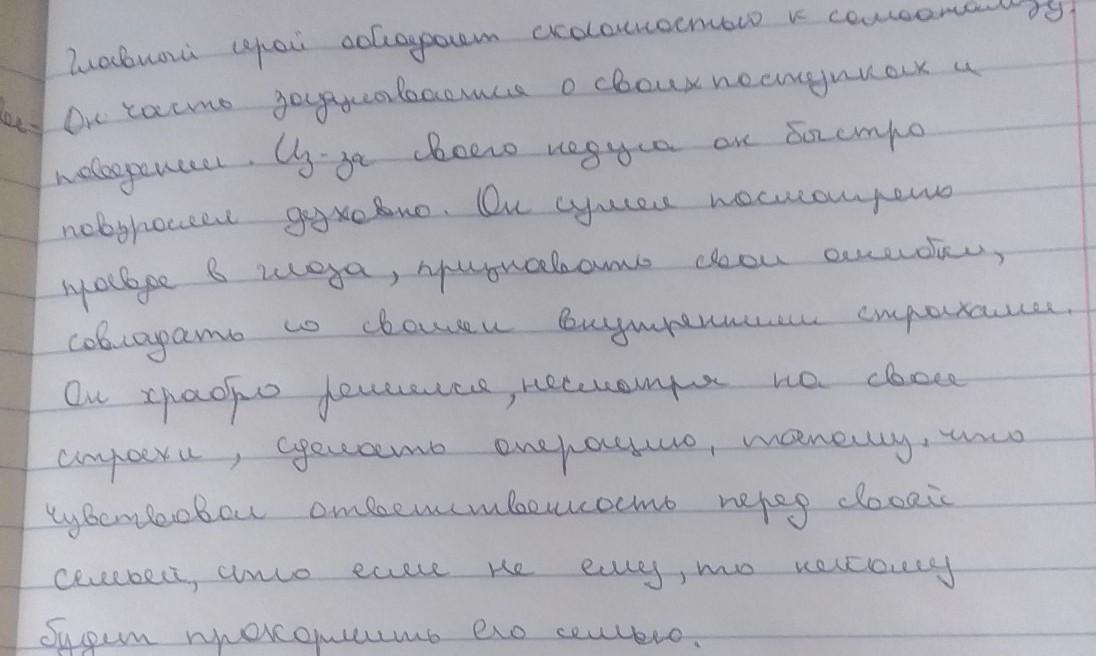 Главной герой обладает склонностью к самоанализу.
Он часто задумывается о своих поступках и
поведении. Из-за своего недуга он быстро
повзрослел духовно. Он сумел посмотреть
правде в глаза, признавать свои ошибки,
совладать со своими внутренними страхами.
Он храбро решился, несмотря на свои
страхи, сделать операцию, потому, что
чувствовал ответственность перед своей
семьей, что если не ему, то некому
будет прокормить его семью.